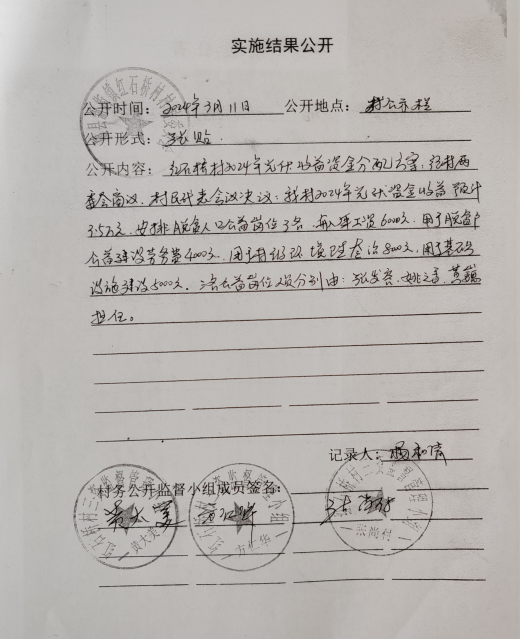 实施结果公开
公开时间：2024年3月11日 公开地点：村公示栏
公开形式：张贴
公开内容：红石桥村2024年光伏收益资金分配方案：经村两
委会商议、村民代表会议决议：我村2024年光伏资金收益预计
3.5万元，安排脱贫人口公益岗位3名，每人年工资6000元，用于脱贫户
公益建设劳务费4000元，用于村级环境整治8000元，用于基础
设施建设5000元。三名公益岗位人员分别由：张发
担任。
记录人：
村务公开监督小组成员签名：
黄大
方仁华
张尚